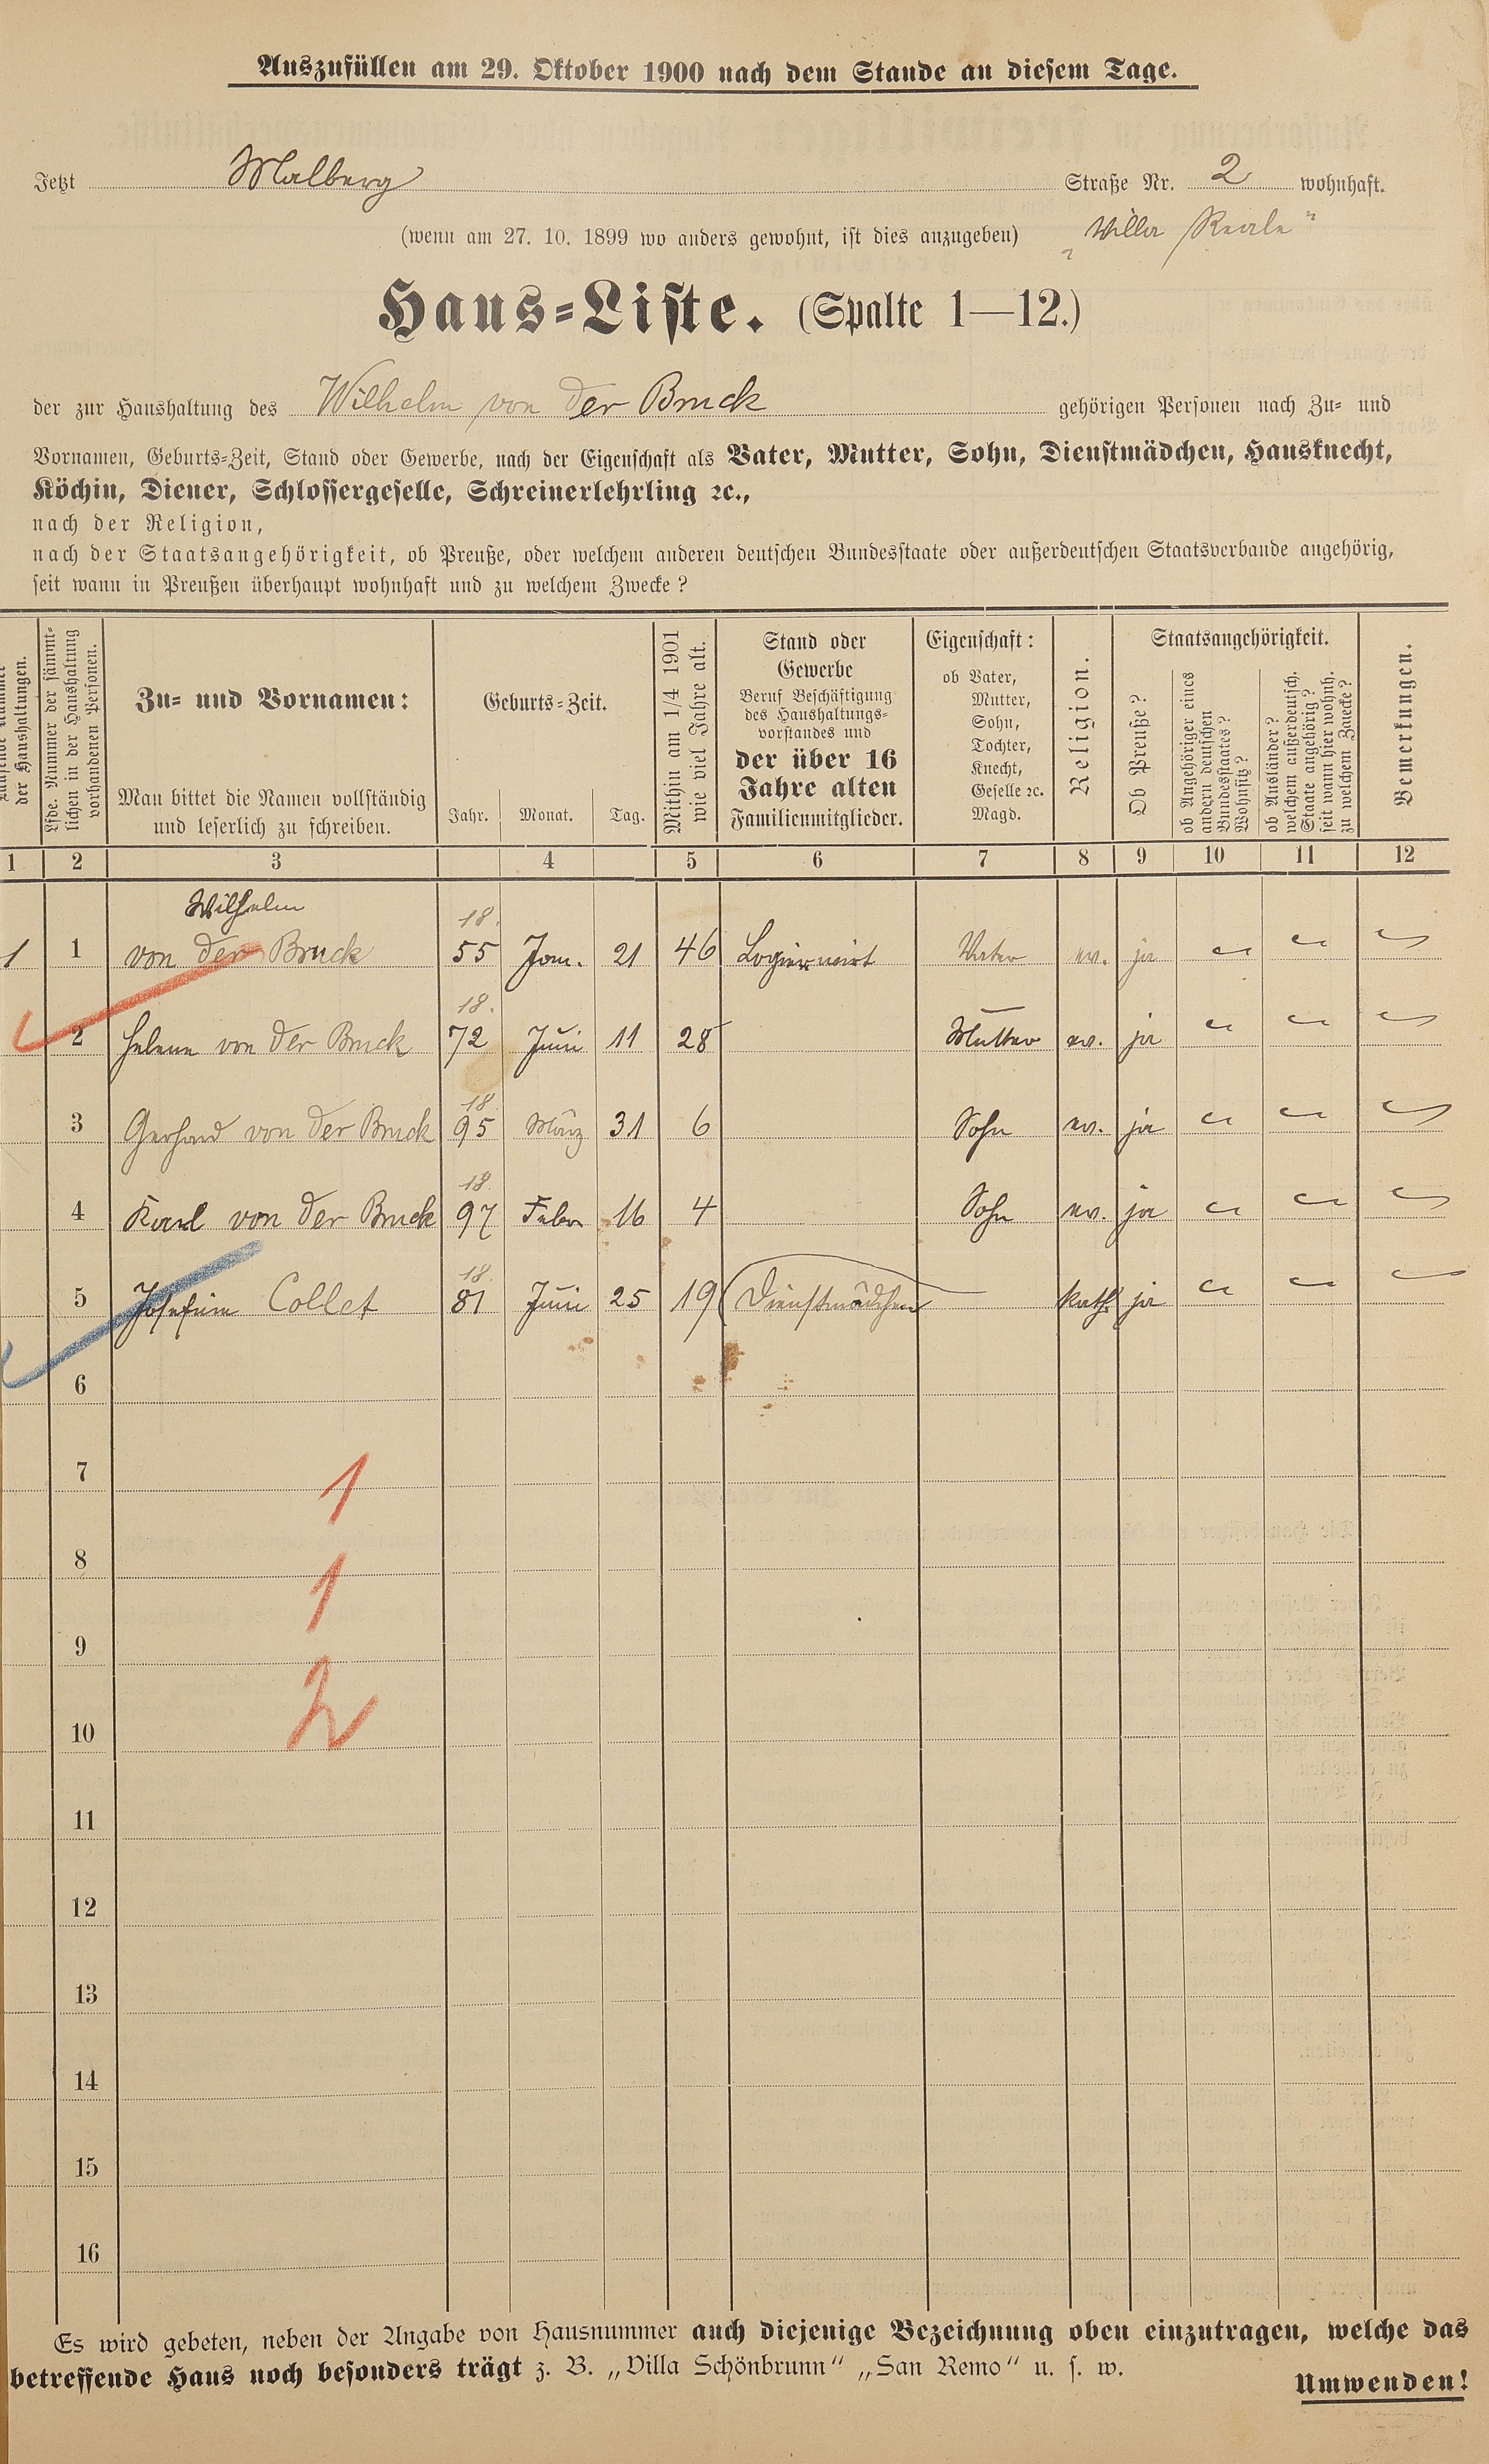 Auszufüllen am 29. Oktober 1900 nach dem Stande an diesem Tage.
Jetzt Malberg Straße Nr. 2 wohnhaft.
(wenn am 27. 10. 1899 wo anders gewohnt, ist dies anzugeben) „Villa Reale"
Haus=Liste. (Spalte 1—12.)
der zur Haushaltung des Wilhelm von der Bruck gehörigen Personen nach Zu= und
Vornamen, Geburts=Zeit, Stand oder Gewerbe, nach der Eigenschaft als Vater, Mutter, Sohn, Dienstmädchen, Hausknecht,
Köchin, Diener, Schlossergeselle, Schreinerlehrling ꝛc.,
nach der Religion,
nach der Staatsangehörigkeit, ob Preuße, oder welchem anderen deutschen Bundesstaate oder außerdeutschen Staatsverbande angehörig,
seit wann in Preußen überhaupt wohnhaft und zu welchem Zwecke?
Nummer
der Haushaltungen.
Lfde. Nummer der sämmt=
lichen in der Haushaltung
vorhandenen Personen.
Zu= und Vornamen:
Man bittet die Namen vollständig
und leserlich zu schreiben.
Geburts=Zeit.
Jahr. Monat. Tag.
Mithin am 1/4 1901
wie viel Jahre alt.
Stand oder
Gewerbe
Beruf Beschäftigung
des Haushaltungs=
vorstandes und
der über 16
Jahre alten
Familienmitglieder.
Eigenschaft:
ob Vater,
Mutter,
Sohn,
Tochter,
Knecht,
Geselle ꝛc.
Magd.
Religion.
Staatsangehörigkeit.
Ob Preuße?
ob Angehöriger eines
andern deutschen
Bundesstaates?
Wohnsitz?
ob Ausländer?
welchem außerdeutsch.
Staate angehörig?
seit wann hier wohnh.
zu welchem Zwecke?
Bemerkungen.
1 2 3 4 5 6 7 8 9 10 11 12
Wilhelm 18.
1 1 von der Bruck 55 Jan. 21 46 Logierwirt Vater ev. ja
18.
2 Helene von der Bruck 72 Juni 11 28 Mutter ev. ja
18.
3 Gerhard von der Bruck 95 März 31 6 Sohn ev. ja
18.
4 Karl von der Bruck 97 Febr 16 4 Sohn ev. ja
18.
5 Josefine Collet 81 Juni 25 19 Dienstmädchen kath. ja
6
7
1
8
1
9
2
10
11
12
13
14
15
16
Es wird gebeten, neben der Angabe von Hausnummer auch diejenige Bezeichnung oben einzutragen, welche das
betreffende Haus noch besonders trägt z. B. „Villa Schönbrunn" „San Remo" u. s. w.
Umwenden!